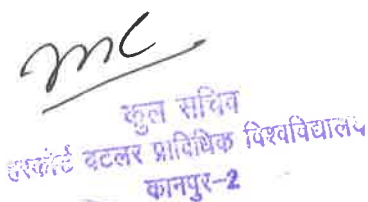 कुल सचिव
हरकोर्ट बटलर प्राविधिक विश्वविद्यालय
कानपुर-2